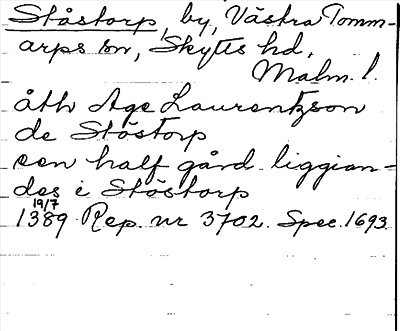 Ståstorp, by, Västra Tomm-
arps sn, Skytts hd,
Malm. l.
åth Age Laurentzson
de Ståstorp
een half gård liggian-
des i Ståstorp
19/7
1389 Rep. nr 3702. Spec. 1693